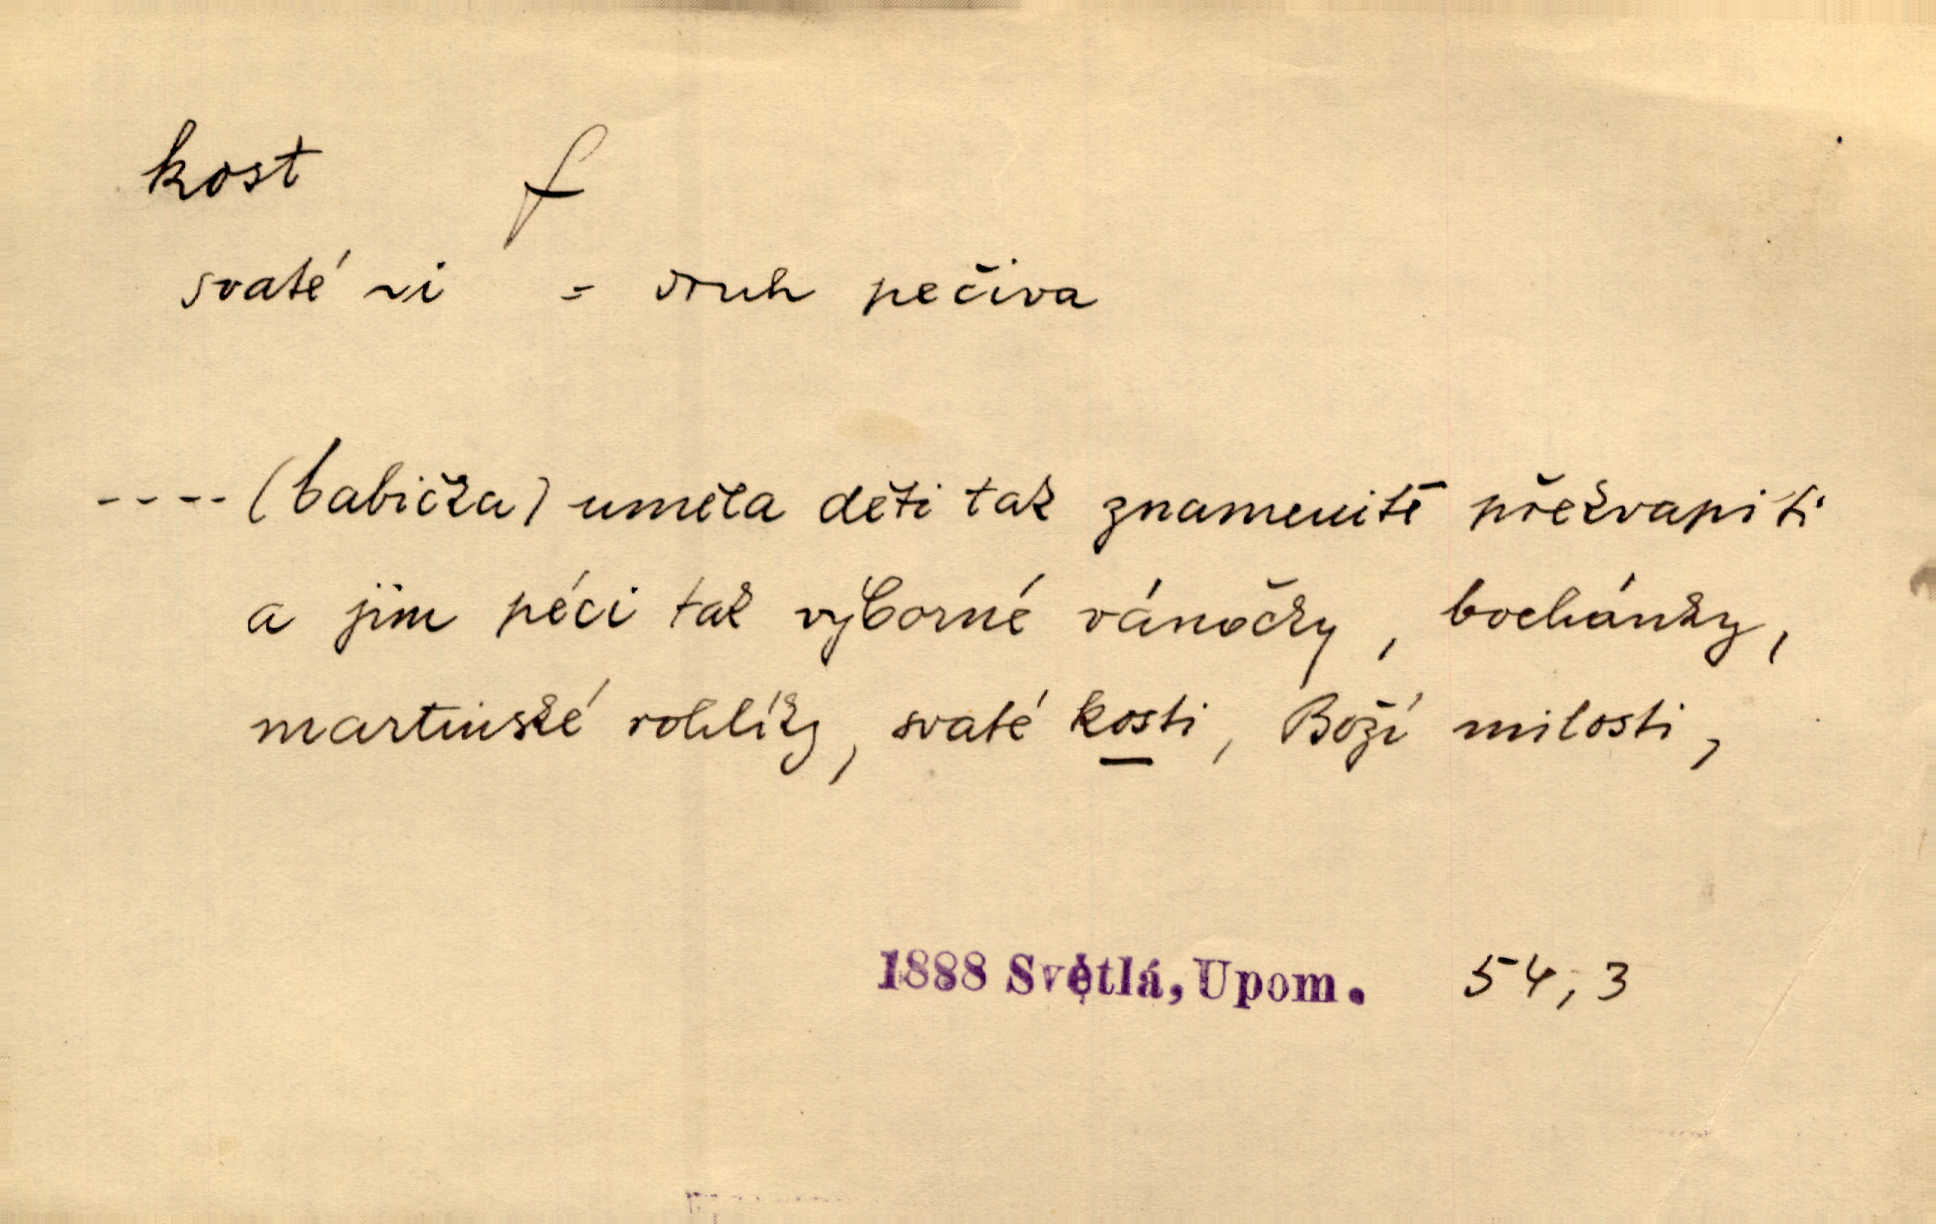 kost f
svaté ~i = druh pečiva
---- (babička) uměla děti tak znamenitě překvapiti
a jim péci tak výborné vánočky, bochánky,
martinské rohlíky, svaté kosti, Boží milosti,
1888 Světlá, Upom. 54, 3